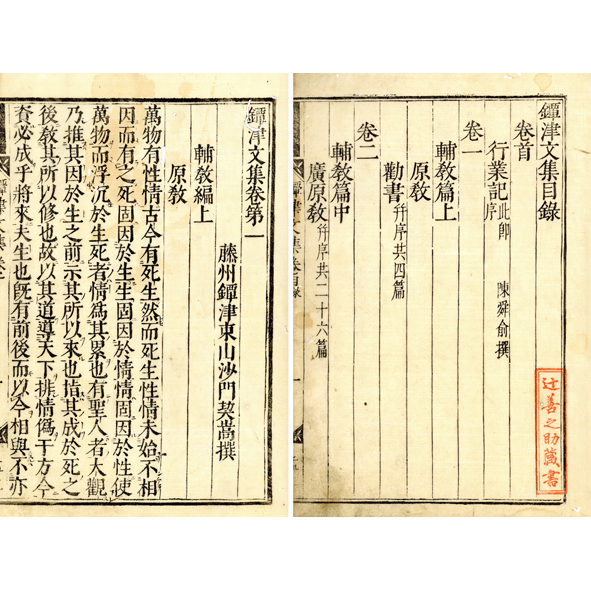 鐔津文集目錄
卷首
行業記此即序 陳舜俞撰
卷一
輔敎篇上
原敎
勸書并序共四篇
卷二
輔敎篇中
廣原敎并序共二十六篇
辻善之助藏書
鐔津文集卷第一
藤州鐔津東山沙門契嵩撰
輔敎編上
原敎
萬物有性情古今有死生然而死生性情未始不相
因而有之死固因於生生固因於情情固因於性使
萬物而浮沉於生死者情爲其累也有聖人者大觀
乃推其因於生之前示其所以來也指其成於死之
後敎其所以修也故以其道導天下排情僞于方今
資必成乎將來夫生也旣有前後而以今相與不亦